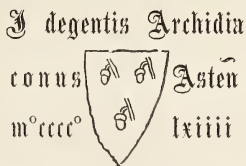 I degentis Archidia
conus Asten̄
m°cccc° lxiiii